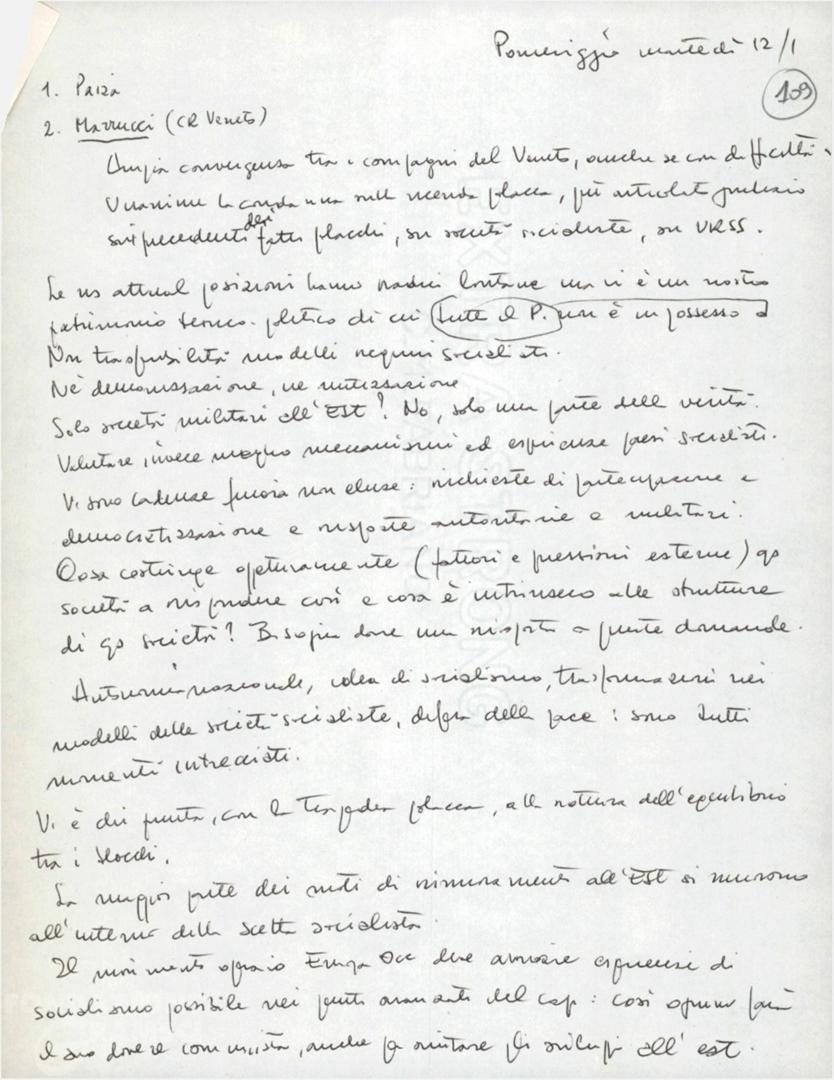 Pomeriggio martedì 12/1
109
1. Paiza
2. Marrucci (CR Veneto)
Ampia convergenza tra i compagni del Veneto, anche se con difficoltà.
Unanime la condanna sulla vicenda polacca, più articolato giudizio
sui precedenti dei fatti polacchi, su società socialiste, su URSS.
Le ns attuali posizioni hanno radici lontane ma vi è un nostro
patrimonio teorico-politico di cui tutto il P. non è in possesso
Non trasferibilità modelli regimi socialisti.
Nè demonizzazione, nè mitizzazione
Solo società militari all'EST? No, solo una parte della verità.
Valutare invece meglio meccanismi ed esperienze paesi socialisti.
Vi sono cadenze finora non eluse: richieste di partecipazione e
democratizzazione e risposte autoritarie e militari.
Cosa costringe (fattori e pressioni esterne) qs
società a rispondere così e cosa è intrinseco alle strutture
di qs società? Bisogna dare una risposta a queste domande.
Autonomia nazionale, idea di socialismo, trasformazioni nei
modelli delle società socialiste, difesa della pace: sono tutti
momenti intrecciati.
Vi è chi punta, con la tragedia polacca, alla rottura dell'equilibrio
tra i blocchi.
La maggior parte dei moti di rinnovamento all'EST si muovono
all'interno della scelta socialista.
Il movimento operaio Europa Occ deve avviare esperienze di
socialismo possibile nei punti avanzati del cap: così ognuno farà
il suo dovere comunista, anche per aiutare gli sviluppi all'est.